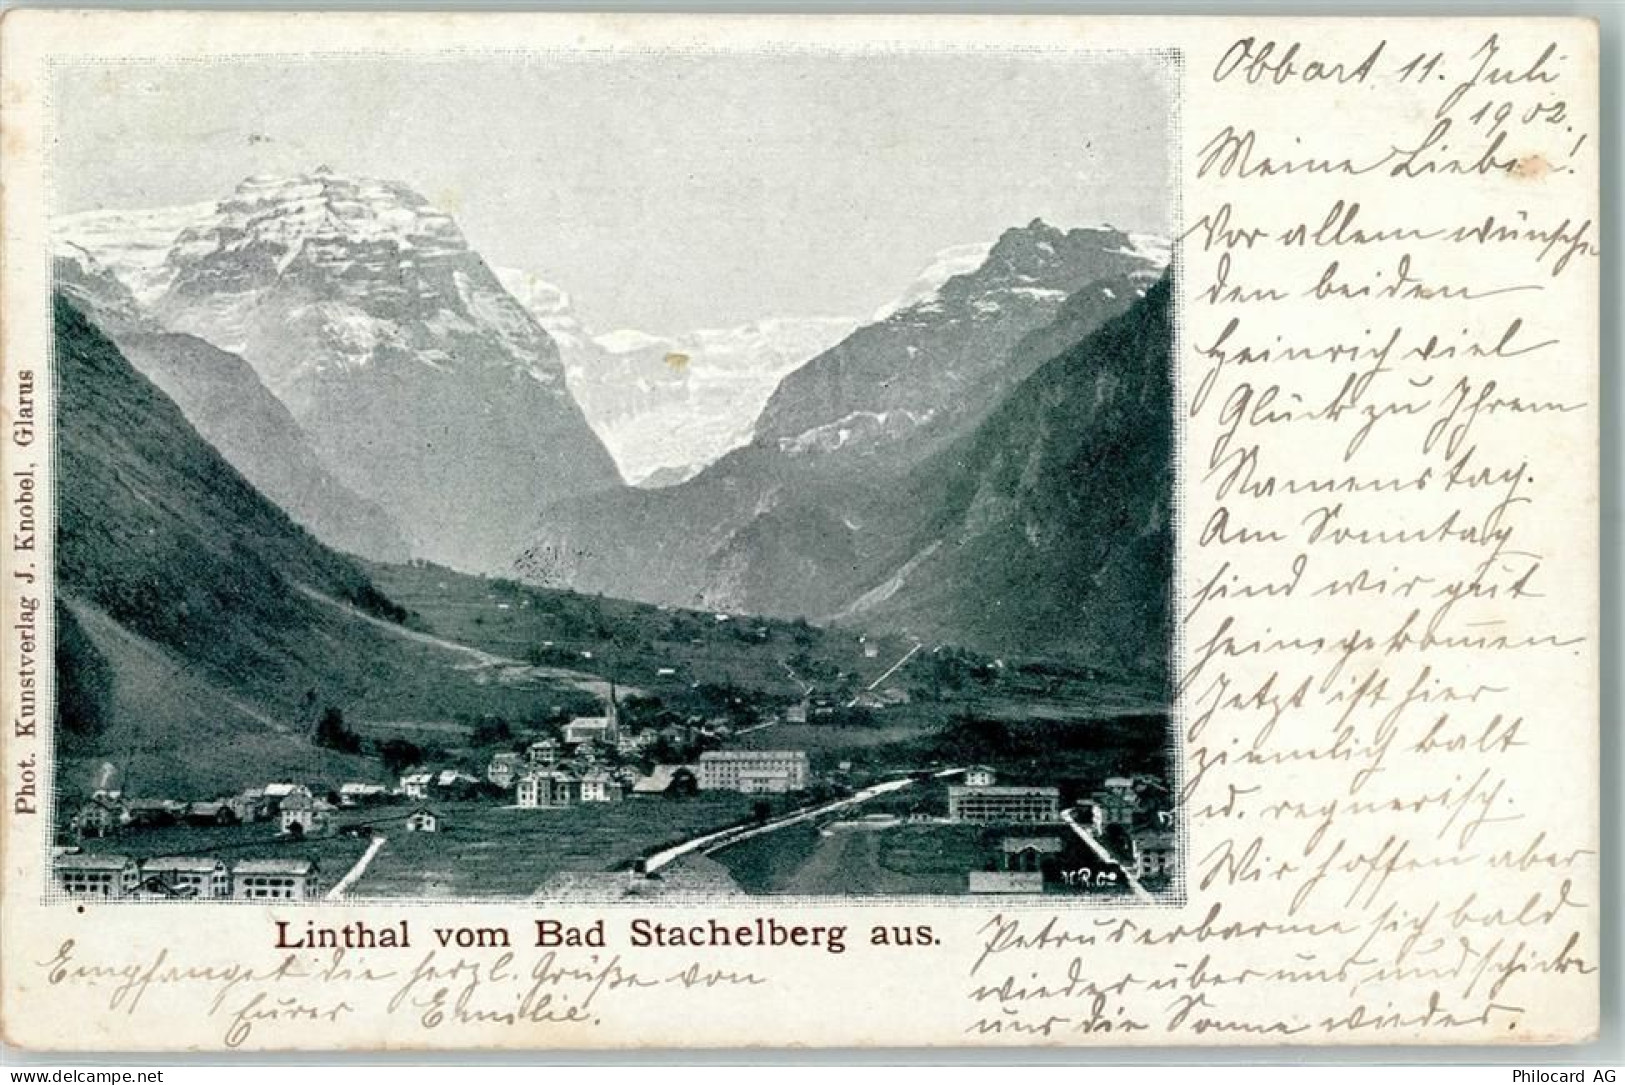 Obbort 11. Juli
1902.
Meine Lieben!
Vor allem wünsche
den beiden
Heinrich viel
Glück zu Ihrem
Namenstag.
Am Sonntag
sind wir gut
heimgekom̄en.
Jetzt ist hier
ziemlich kalt
u. regnerisch.
Wir hoffen aber
Petrus erbarme sich bald
wieder über uns, und schicke
uns die Sonne wieder.
Linthal vom Bad Stachelberg aus.
Empfanget die herzl. Grüße von
Eurer Emilie.
Phot. Kunstverlag J. Knobel, Glarus
delcampe.net
Philocard AG